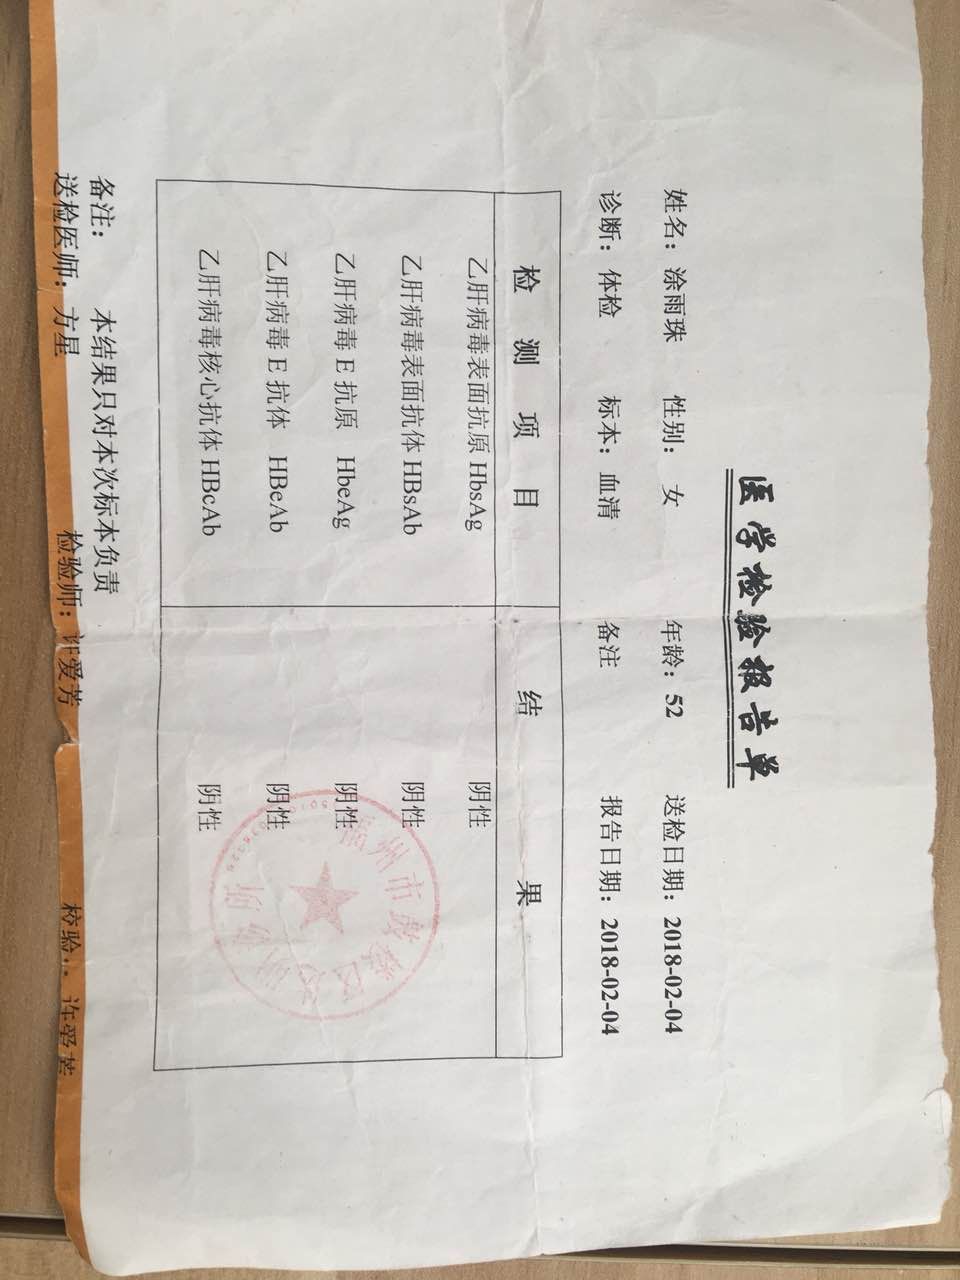 医学检验报告单
姓名：涂雨珠 性别：女 年龄：52 送检日期：2018-02-04
诊断：体检 标本：血清 备注 报告日期：2018-02-04
检测项目 结果
乙肝病毒表面抗原 HbsAg 阴性
乙肝病毒表面抗体 HBsAb 阴性
乙肝病毒 E 抗原 HbeAg 阴性
乙肝病毒 E 抗体 HBeAb 阴性
乙肝病毒核心抗体 HBcAb 阴性
备注： 本结果只对本次标本负责
送检医师：方星 检验师：许爱芳 校验： 许爱芳